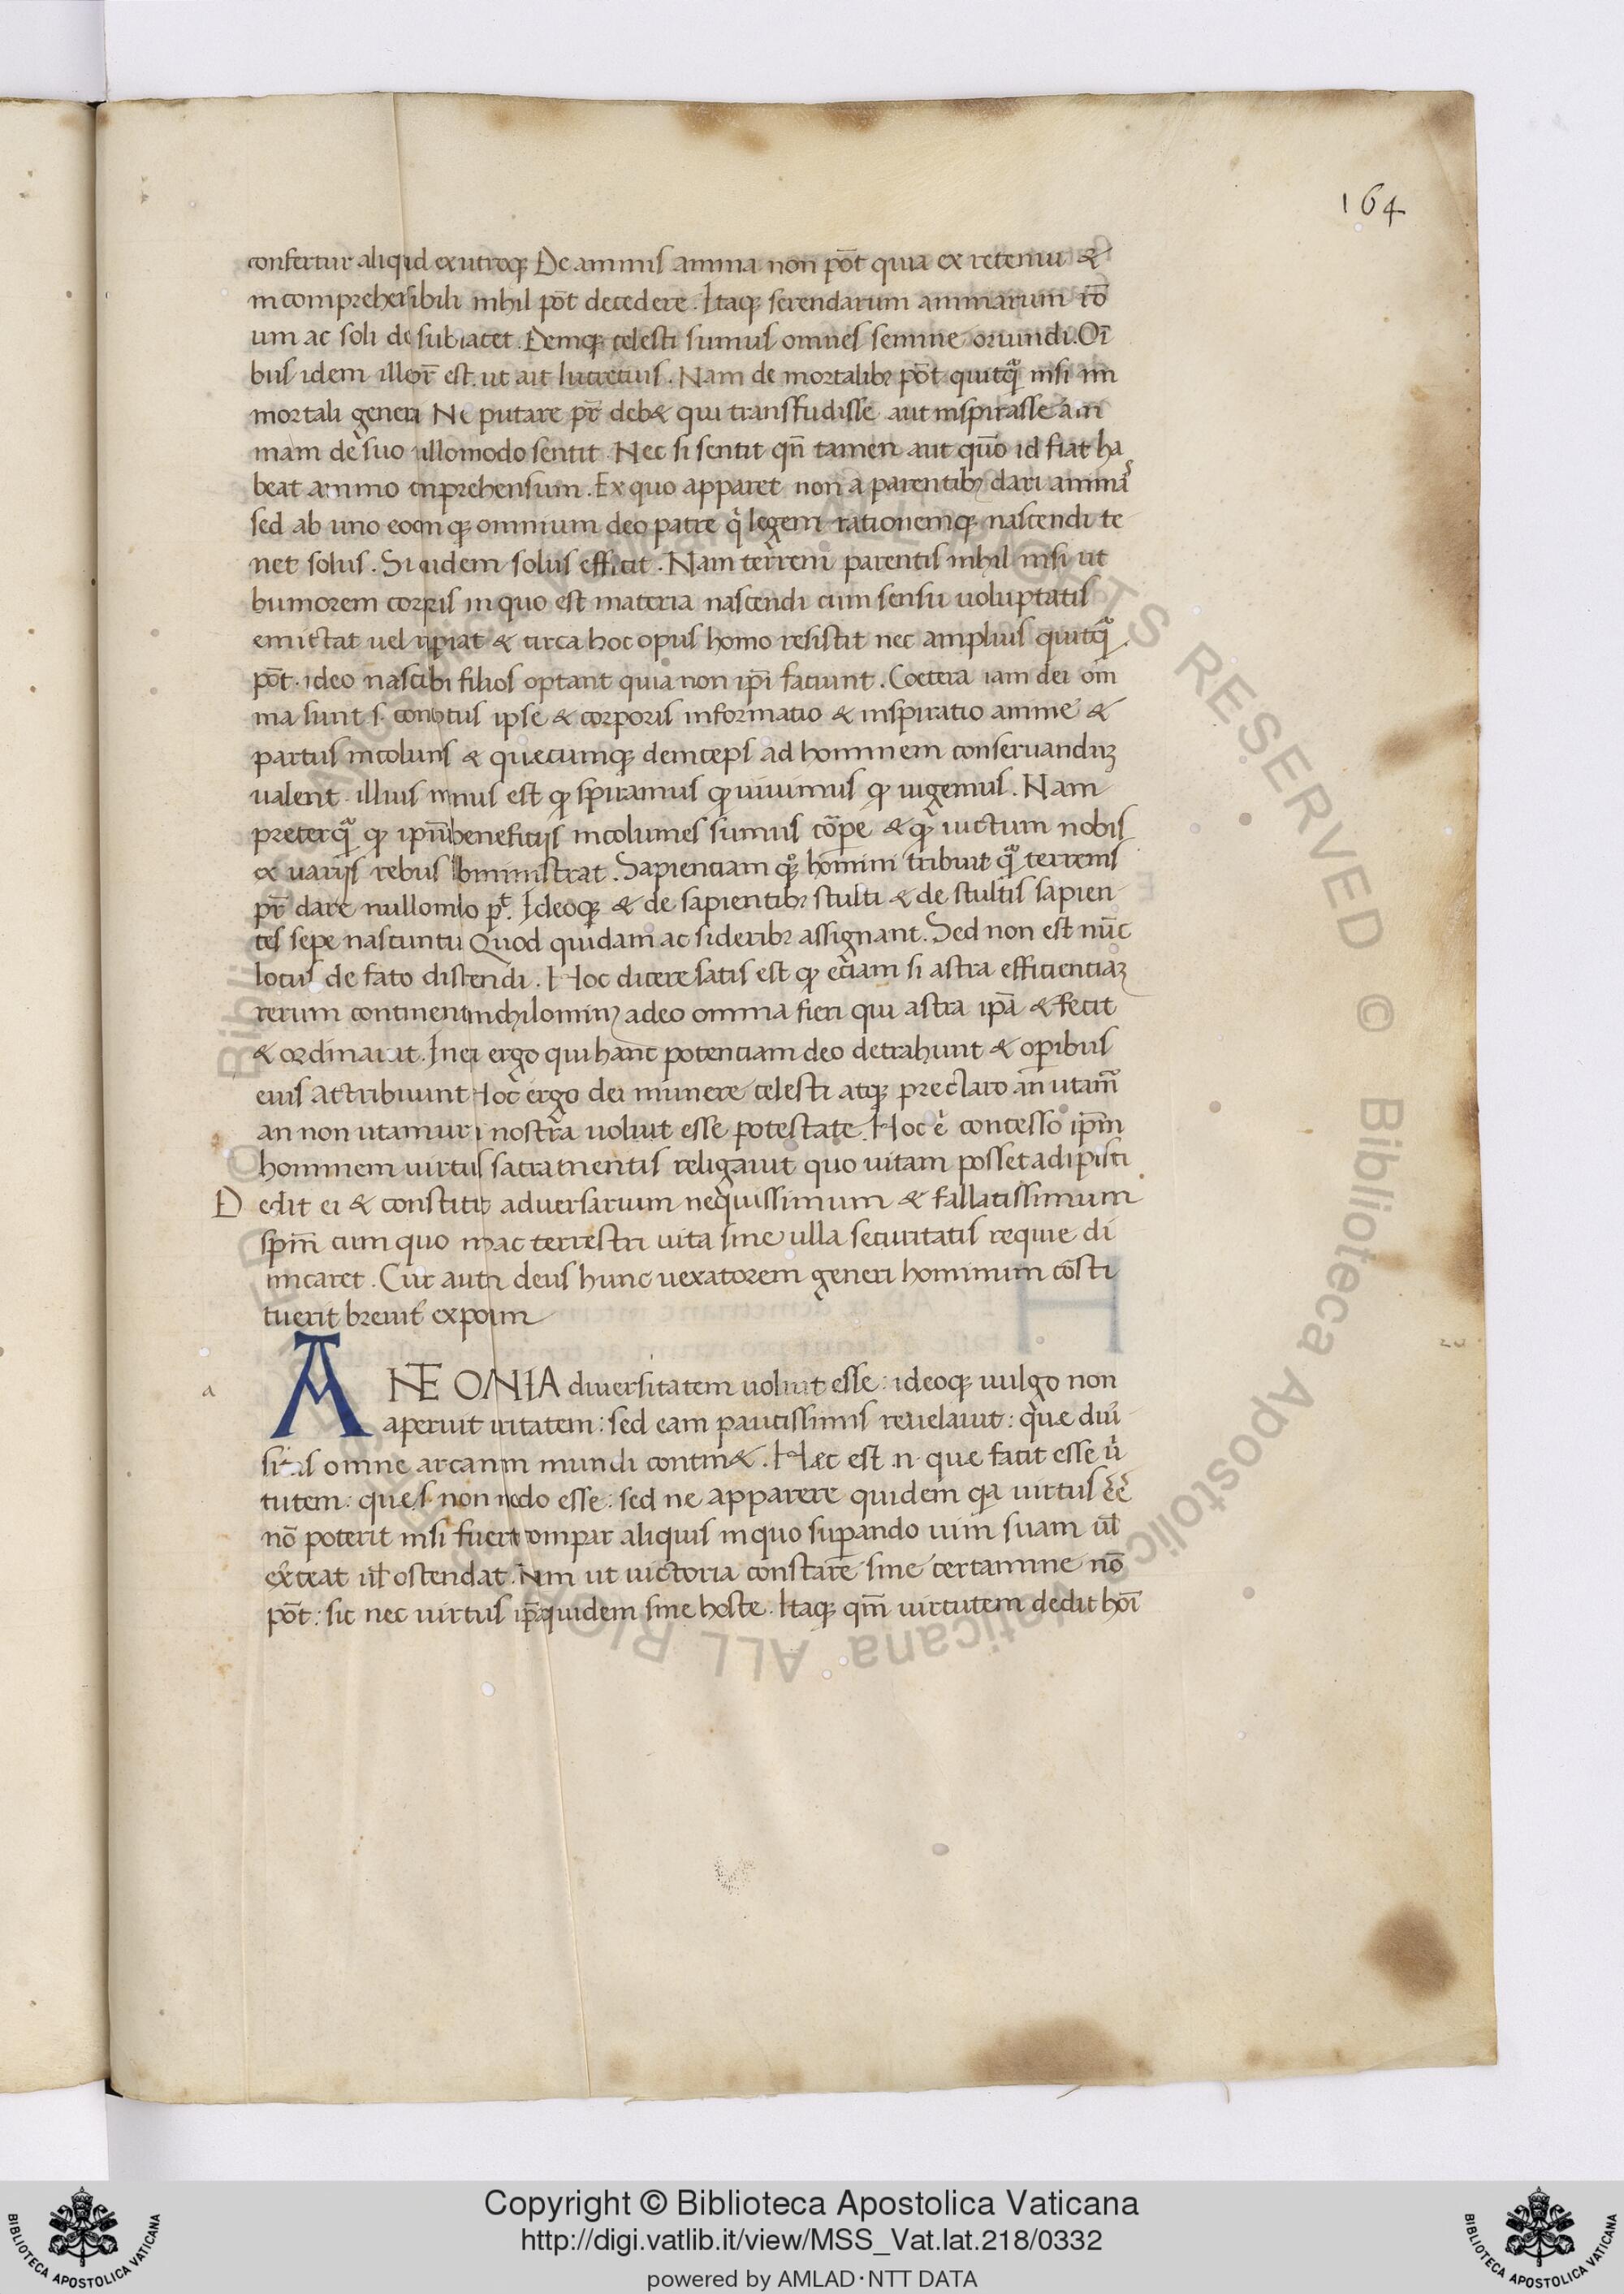 164
confertur aliquid ex utroq; De animis anima non põt quia ex re tenui &
incomprehensibili nihil põt decedere. Itaq; serendarum animarum rõ
um ac soli deo subiacet. Deniq; celesti sumus omnes semine oriundi. Oĩ
bus idem ille pr̃ est. ut ait lucretius. Nam de mortalibꝫ põt quicq̃ nisi im
mortali generi Ne putare pr̃ deb& qui transfudisse aut inspirasse ani
mam de suo ullomodo sentit. Nec si sentit qñ tamen aut quõ id fiat ha
beat animo cnprehensum. Ex quo apparet non a parentibꝫ dari animãs
sed ab uno eodemq; omnium deo patre q̇ legem rationemq; nascendi te
net solus. Siquidem solus efficit. Nam terreni parentis nihil nisi ut
humorem corporis in quo est materia nascendi cum sensu uoluptatis
emictat uel recipiat & circa hoc opus homo resistit nec amplius quicq̃
põt. ideo nasci sibi filios optant quia non ip̃i faciunt. Coetera iam dei om̃
nia sunt .s. conceptus ipse & corporis informatio & inspiratio anime &
partus incolumis & quecumq; deinceps ad hominem conseruanduꝫ
ualent. illius munus est ꝙ spiramus ꝙ uiuimus ꝙ uigemus. Nam
preterq̃ ꝙ ipiũs beneficijs incolumes sumus cõpe & ꝙ uictum nobis
ex uarijs rebus subministrat. Sapienciam quoq; homini tribuit q̃ terrenus
pr̃ dare nullomodo pt. Ideoq; & de sapientibꝫ stulti & de stultis sapien
tes sepe nascuntur Quod quidam ac sideribꝫ assignant. Sed non est nũc
locus de fato disserendi. Hoc dicere satis est ꝙ eciam si astra efficienciaꝫ
rerum continent nichilominꝰ a deo omnia fieri qui astra ip̃a & fecit
& ordinauit. Inepti ergo qui hanc potenciam deo detrahunt & operibus
eius attribuunt Hoc ergo dei munere celesti atq; preclaro an utamur
an non utamur in nostra uoluit esse potestate. Hoc .n. concesso ip̃m
hominem uirtutis sacramentis religauit quo uitam posset adipisci
Dedit ei & constituit aduersarium nequissimum & fallacissimum
sp̃m cum quo in hac terrestri uita sine ulla securitatis requie di
micaret. Cur autem deus hunc uexatorem generi hominum cõsti
tuerit breuit̃ exponam
a
ANTE ONĨA diuersitatem uoluit esse: ideoq; uulgo non
aperuit ueritatem: sed eam paucissimis reuelauit: que diũ
sitas omne arcanum mundi contin&. Hec est .n. que facit esse ũ
tutem: que .s. non modo esse: sed ne apparere quidem q̃a uirtus ẽẽ
nõ poterit nisi fuerit compar aliquis in quo superando uim suam ul̃
exerceat ul̃ ostendat. Nam ut uictoria constare sine certamine nõ
põt: sic nec uirtus ip̃a quidem sine hoste. Itaq; qm̃ uirtutem dedit hoĩ
© Biblioteca Apostolica Vaticana ALL RIGHTS RESERVED
Copyright © Biblioteca Apostolica Vaticana
http://digi.vatlib.it/view/MSS_Vat.lat.218/0332
powered by AMLAD·NTT DATA
BIBLIOTECA APOSTOLICA VATICANA
BIBLIOTECA APOSTOLICA VATICANA